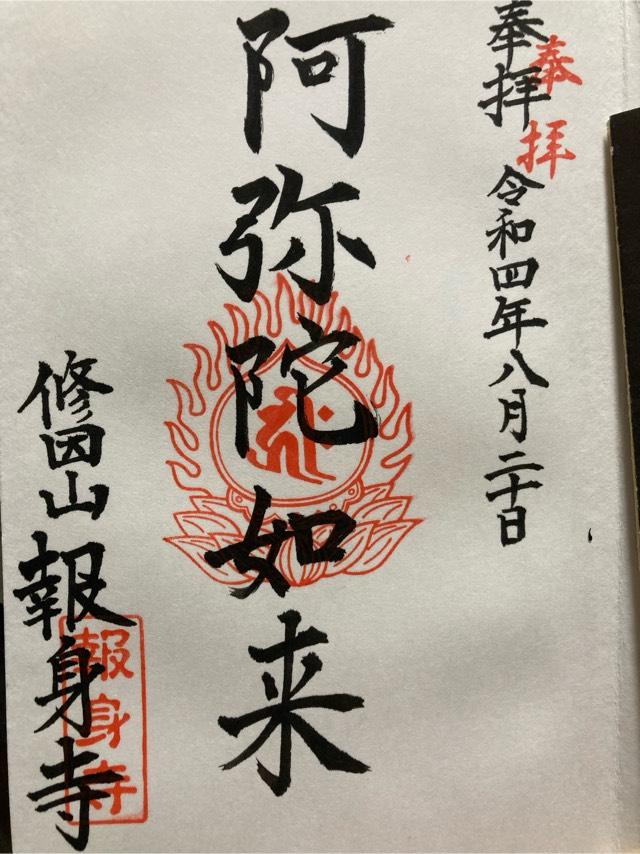 奉拝 令和四年八月二十日
奉拝
阿弥陀如来
修因山 報身寺
報身寺